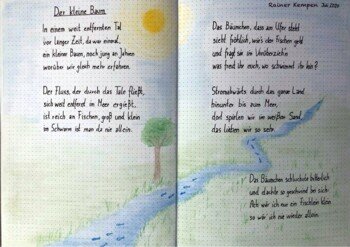 Der kleine Baum
In einem weit entfernten Tal
vor langer Zeit, da war einmal,
ein kleiner Baum, noch jung an Jahren
worüber wir gleich mehr erfahren.
Der Fluss, der durch das Tale fließt,
sich weit entfernt im Meer ergießt,
ist reich an Fischen, groß und klein
im Schwarm ist man da nie allein.
Rainer Kempen Jul 2020
Das Bäumchen, dass am Ufer steht
sieht fröhlich, wie's den Fischen geht
und fragt sie im Vorüberziehn
was freut ihr euch, wo schwimmt ihr hin?
Stromabwärts durch das ganze Land
hinunter bis zum Meer,
dort spielen wir im weißen Sand,
das lieben wir so sehr.
Das Bäumchen schluchzte bitterlich
und dachte so geschwind bei sich:
Ach wär ich nur ein Fischlein klein
so wär ich nie wieder allein.